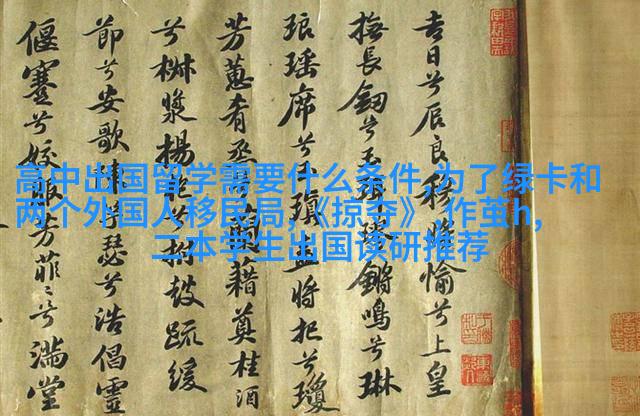 吉日兮辰良穆將愉兮上皇
撫長劔兮玉珥璆鏘鳴兮琳
琅瑶席兮瑱盍將把兮瓊
芳蕙肴烝蘭藉奠桂酒
兮椒漿揚枹兮拊鼓疏緩
節兮安歌瑟兮浩倡靈
偃蹇兮姣服芳菲〻兮滿堂
高中出国留学需要什么条件,为了绿卡和
两个外国人移民局,《掠夺》 作茧h,
二本学生出国读研推荐